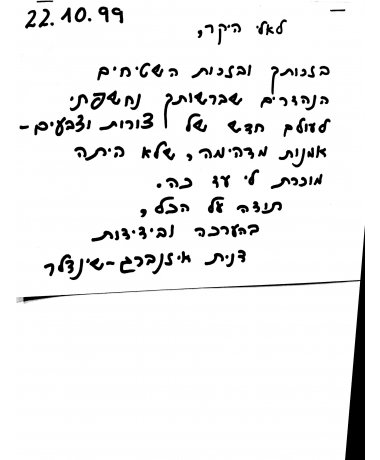 22.10.99
לאלי היקר,
בזכותך ובזכות השטיחים
הנהדרים שברשותך נחשפתי
לעולם חדש של צורות וצבעים -
אמנות מדהימה, שלא היתה
מוכרת לי עד כה.
תודה על הכל,
בהערכה ובידידות
דנית אילנברג-שינדלר